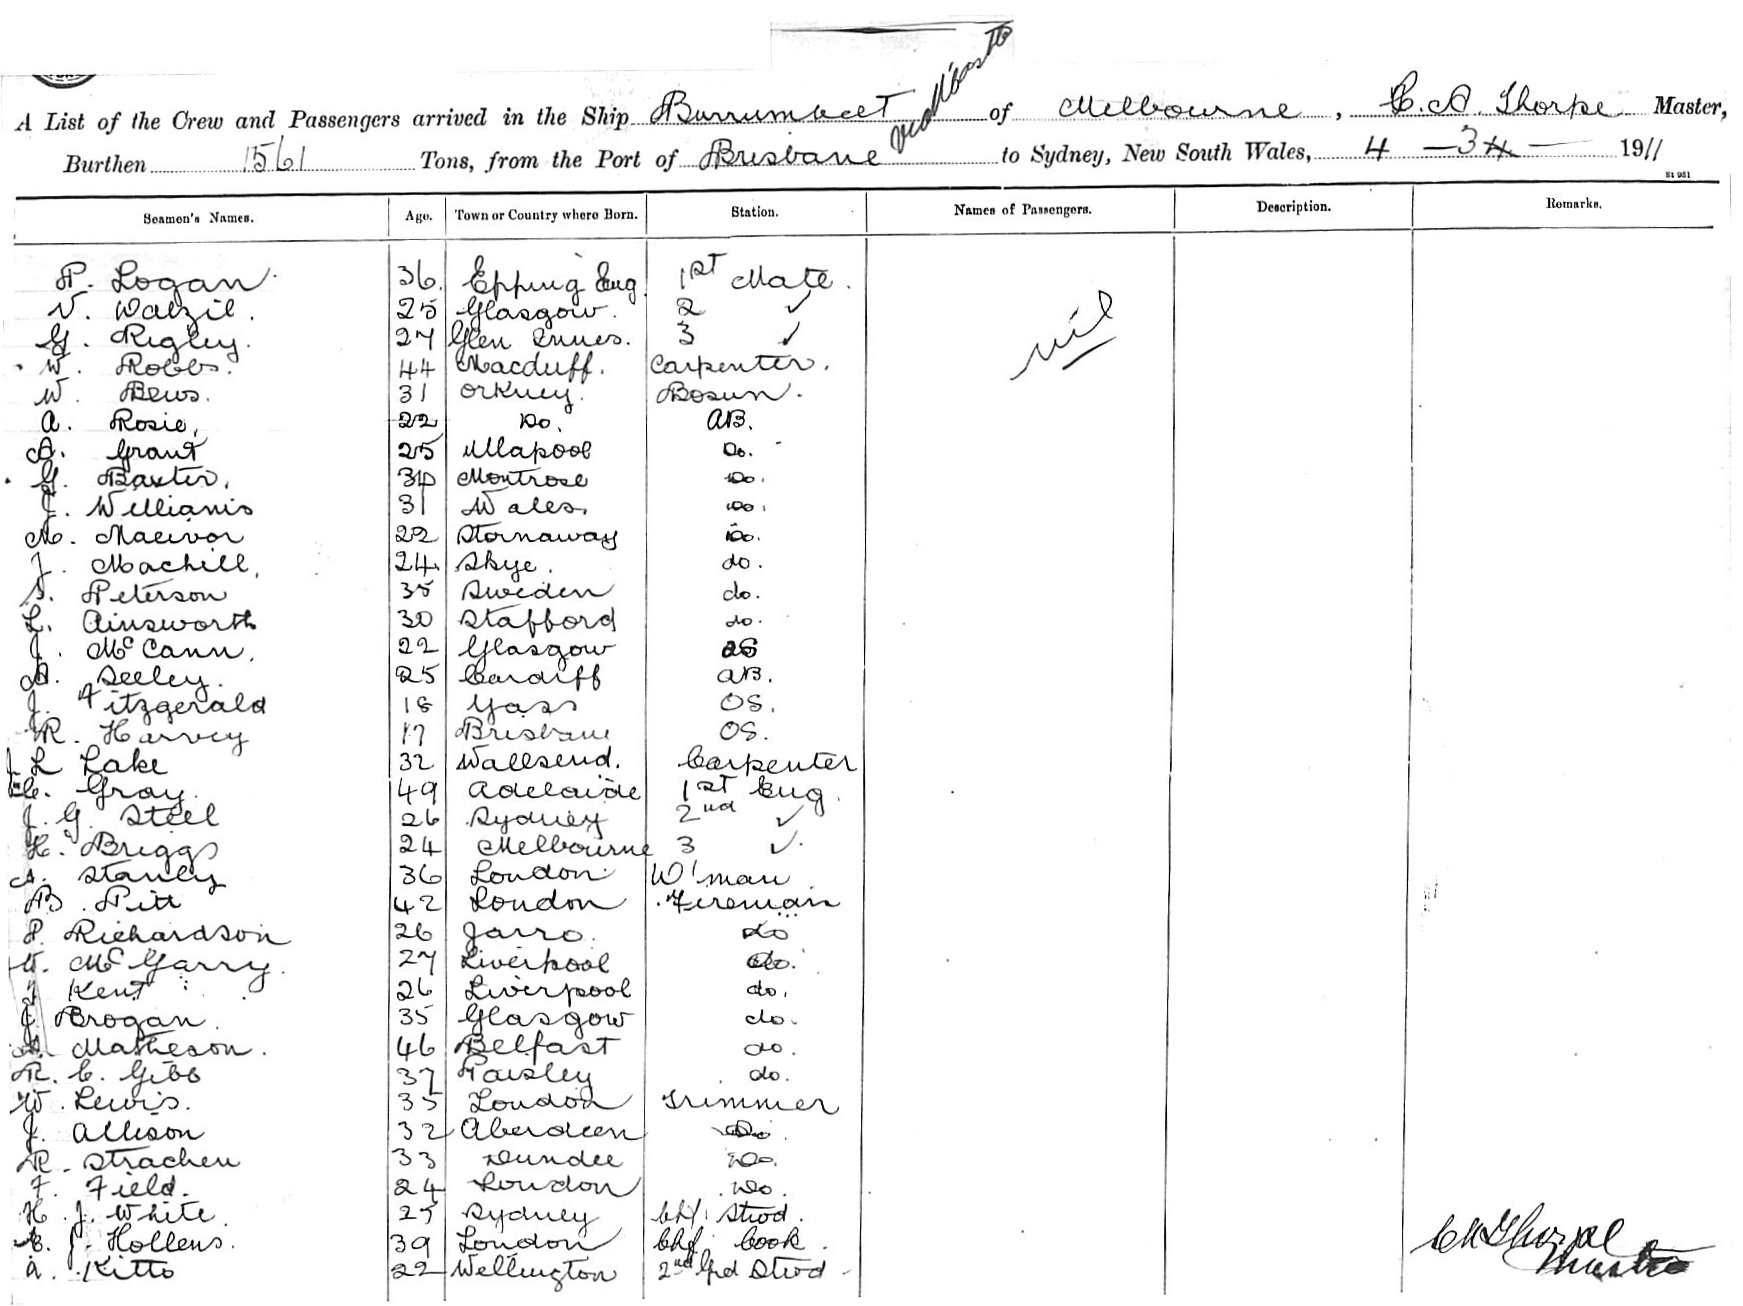 A List of the Crew and Passengers arrived in the Ship Burrumbeet of Melbourne, C. A. Thorpe Master,
Burthen 1561 Tons, from the Port of Brisbane to Sydney, New South Wales, 4 - 3 - 1911
Seamen's Names. Age. Town or Country where Born. Station. Names of Passengers. Description. Remarks.
P. Logan. 36. Epping Eng. 1st Mate.
25 Glasgow. 2 ✓
G. Rigley. 27 Glen Innes. 3 ✓
nil
W. Robbs. 44 Macduff. Carpenter.
W. Bews. 31 Orkney. Bosun.
A. Rosie, 22 Do. AB.
A. Grant 25 Ullapool Do.
G. Baxter. Montrose Do.
J. Williams 31 Wales. Do.
M. Macivor 22 Stornaway Do.
J. Machill. 24 Skye. do.
S. Peterson 35 Sweden do.
L. Ainsworth 30 Stafford do.
J. McCann. 22 Glasgow
A. Seeley. 25 Cardiff AB.
J. Fitzgerald 18 Yass OS.
R. Harvey 17 Brisbane OS.
L Lake 32 Wallsend. Carpenter
Gray. 49 Adelaide 1st Eng.
J. G. Steel 26 Sydney 2nd ✓
H. Briggs 24 Melbourne 3 ✓
A. Stanley 36 London W'man
B. Pitt 42 London Fireman
P. Richardson 26 Jarro. do
W. McGarry. 27 Liverpool do.
J Kent 26 Liverpool do.
J. Brogan. 35 Glasgow do.
A. Matheson. 46 Belfast do.
R. C. Gibb 37 Paisley do.
W. Lewis. 35 London Trimmer
J. Allison 32 Aberdeen Do.
R. Strachen 33 Dundee Do.
F. Field. 24 London Do.
H. J. White 25 Sydney Chf. Stwd.
J. Hollens. 39 London Chf. Cook.
A. Kitto 22 Wellington 2nd Grd Stwd
C A Thorpe
Master